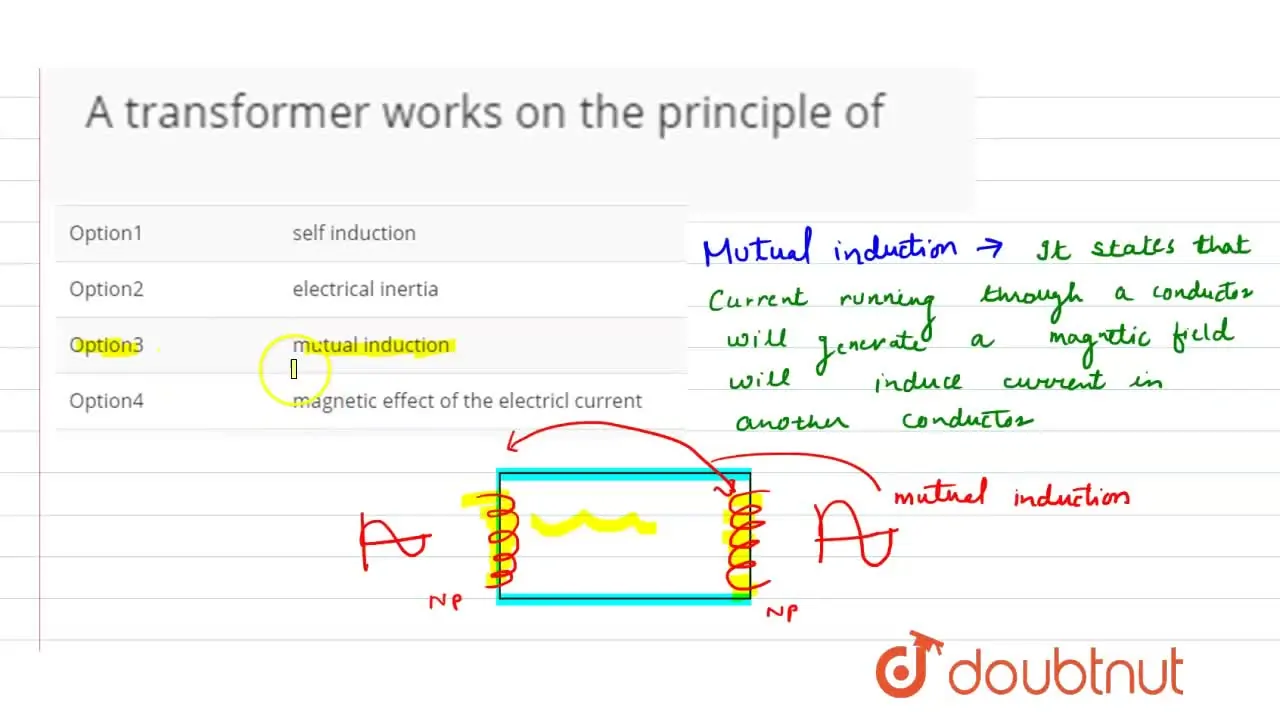 A transformer works on the principle of
Option1 self induction
Option2 electrical inertia
Option3 mutual induction
Option4 magnetic effect of the electricl current
Mutual induction → It states that
Current running through a conductor
will generate a magnetic field
will induce current in
another conductor
mutual induction
NP
NP
doubtnut